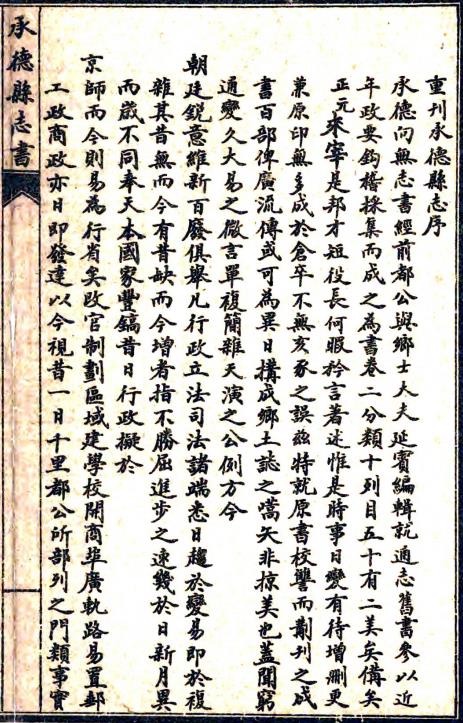 承德縣志書
重刊承德縣志序
承德向無志書經前都公與鄉士大夫延賓編輯就通志舊書參以近
年政要鈎稽採集而成之為書卷二分類十列目五十有二美矣備矣
正元來宰是邦才短役長何暇矜言著述惟是時事日變有待增刪更
兼原印無多成於倉卒不無亥豕之誤茲特就原書校讐而刷刊之成
書百部俾廣流傳或可為異日搆成鄉土誌之嚆矢非掠美也蓋聞窮
通變久大易之微言單複簡雜天演之公例方今
朝廷銳意維新百廢俱舉凡行政立法司法諸端悉日趨於變易即於複
雜其昔無而今有昔缺而今增者指不勝屈進步之速幾於日新月異
而歲不同奉天本國家豐鎬昔日行政擬於
京師而今則易為行省矣改官制劃區域建學校開商埠廣軌路易置郵
工政商政亦日即發達以今視昔一日千里都公所部列之門類事實